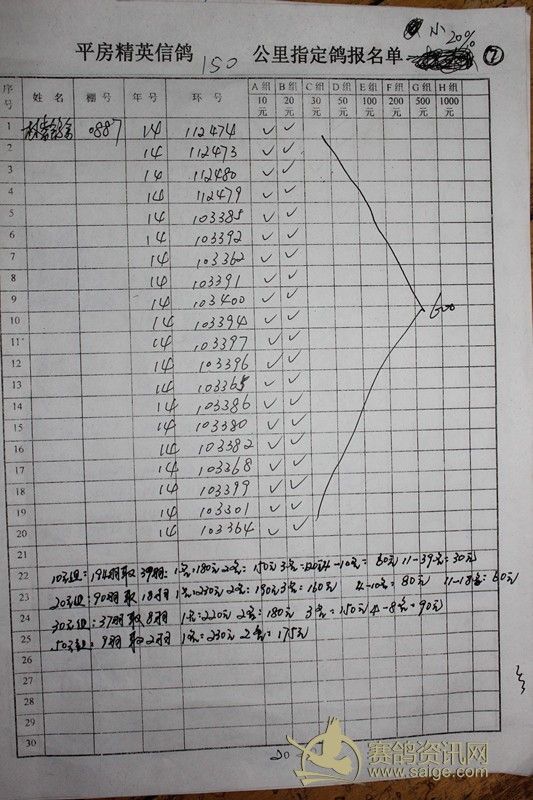 小 20%
平房精英信鸽 150 公里指定鸽报名单 ⑦
序号 姓名 棚号 年号 环号 A组10元 B组20元 C组30元 D组50元 E组100元 F组200元 G组500元 H组1000元
1 0887 14 112474 ✓ ✓
2 14 112473 ✓ ✓
3 14 112480 ✓ ✓
4 14 112479 ✓ ✓
5 14 103385 ✓ ✓
6 14 103392 ✓ ✓
7 14 103362 ✓ ✓
8 14 103391 ✓ ✓
9 14 103400 ✓ ✓ 600
10 14 103394 ✓ ✓
11 14 103397 ✓ ✓
12 14 103396 ✓ ✓
13 14 103365 ✓ ✓
14 14 103386 ✓ ✓
15 14 103380 ✓ ✓
16 14 103382 ✓ ✓
17 14 103368 ✓ ✓
18 14 103399 ✓ ✓
19 14 103301 ✓ ✓
20 14 103364 ✓ ✓
21
22 10元组:194羽取39羽: 1名:180元 2名:150元 3名:120元 4-10名: 60元 11-39名:30元
23 20元组:90羽取18羽 1名:230元 2名:190元 3名:160元 4-10名:80元 11-18名:60元
24 30元组:37羽取8羽 1名:220元 2名:180元 3名:150元 4-8名:90元
25 50元组:9羽取2羽 1名:230元 2名:175元
26
27
28
29
30
20
赛鸽资讯网
www.saige.com